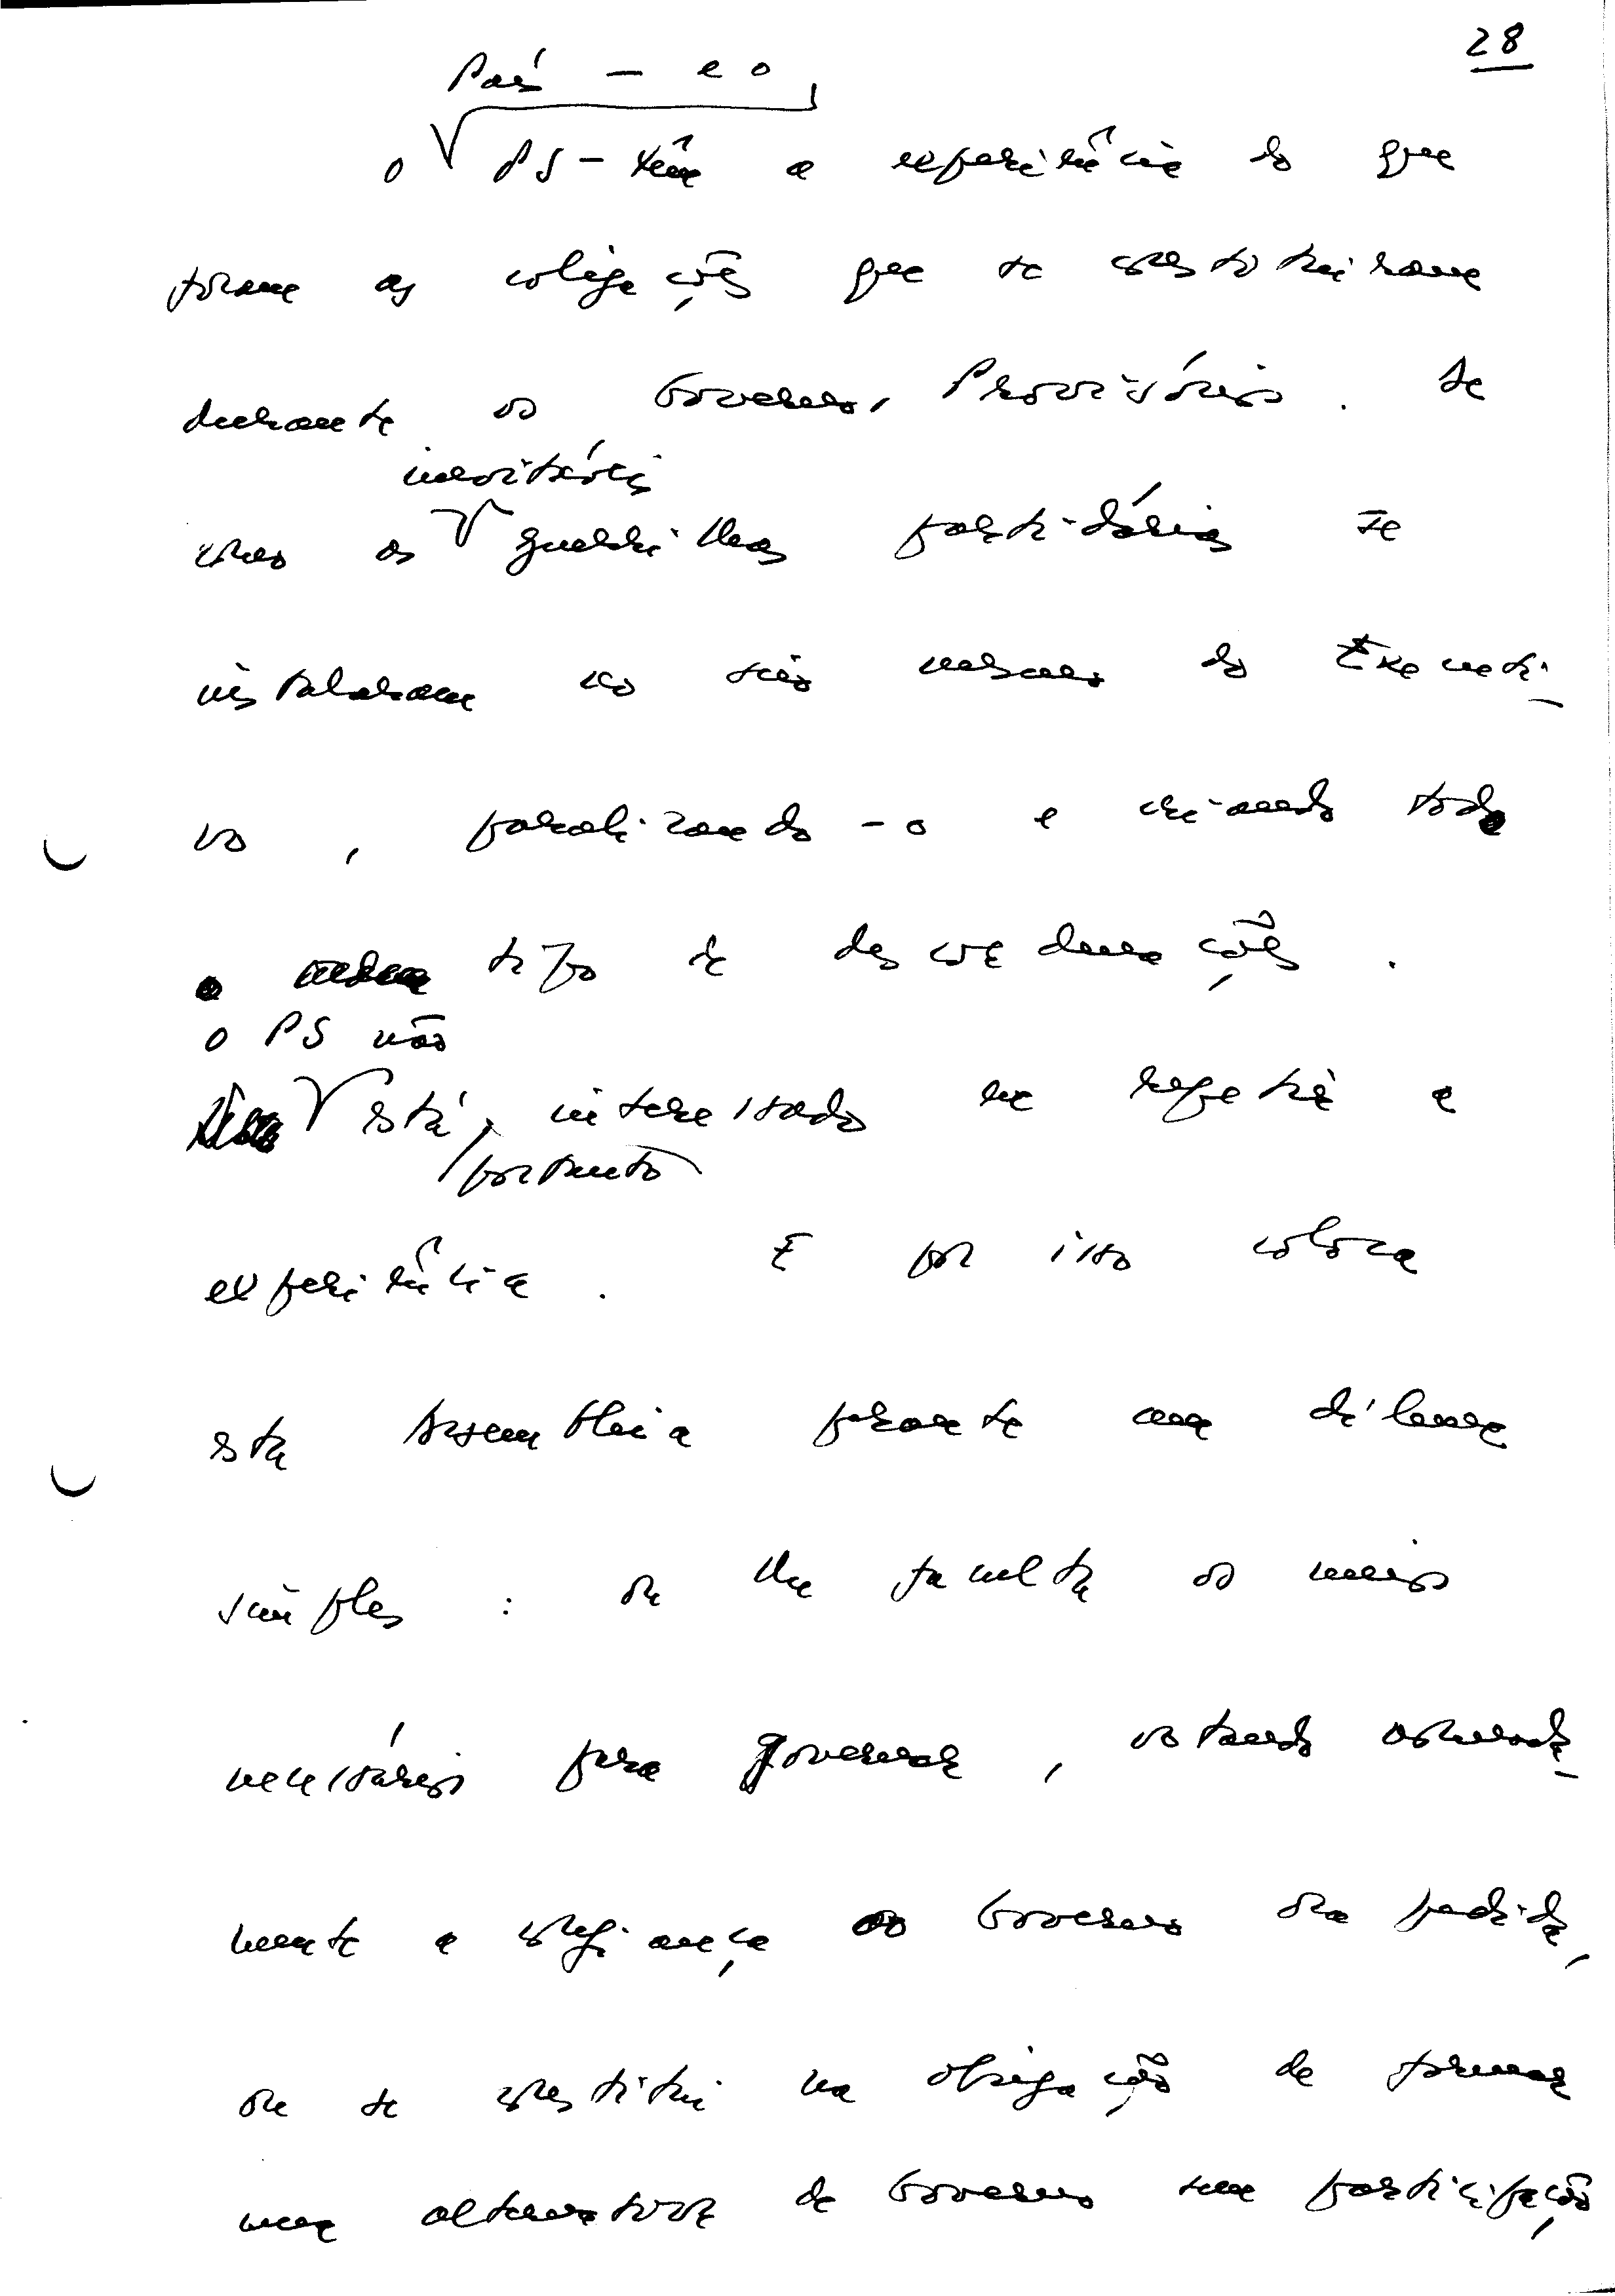 28
País - e o
o PS - têm a experiência do que
foram as coligações que se constituiram
durante os Governos Provisórios. Se
inevitáveis
como as guerrilhas partidárias se
instalaram no seio mesmo do Executi-
vo, paralizando-o e criando todo
o tipo de descoordenações.
o PS não
está, interessado em repetir a
portanto
experiência. E por isso coloca
esta Assembleia perante um dilema
simples: ou lhe faculta os meios
necessários para governar, votando
mente a confiança ao Governo ora pedida,
ou se constitui na obrigação de formar
uma alternativa de Governo sem participação